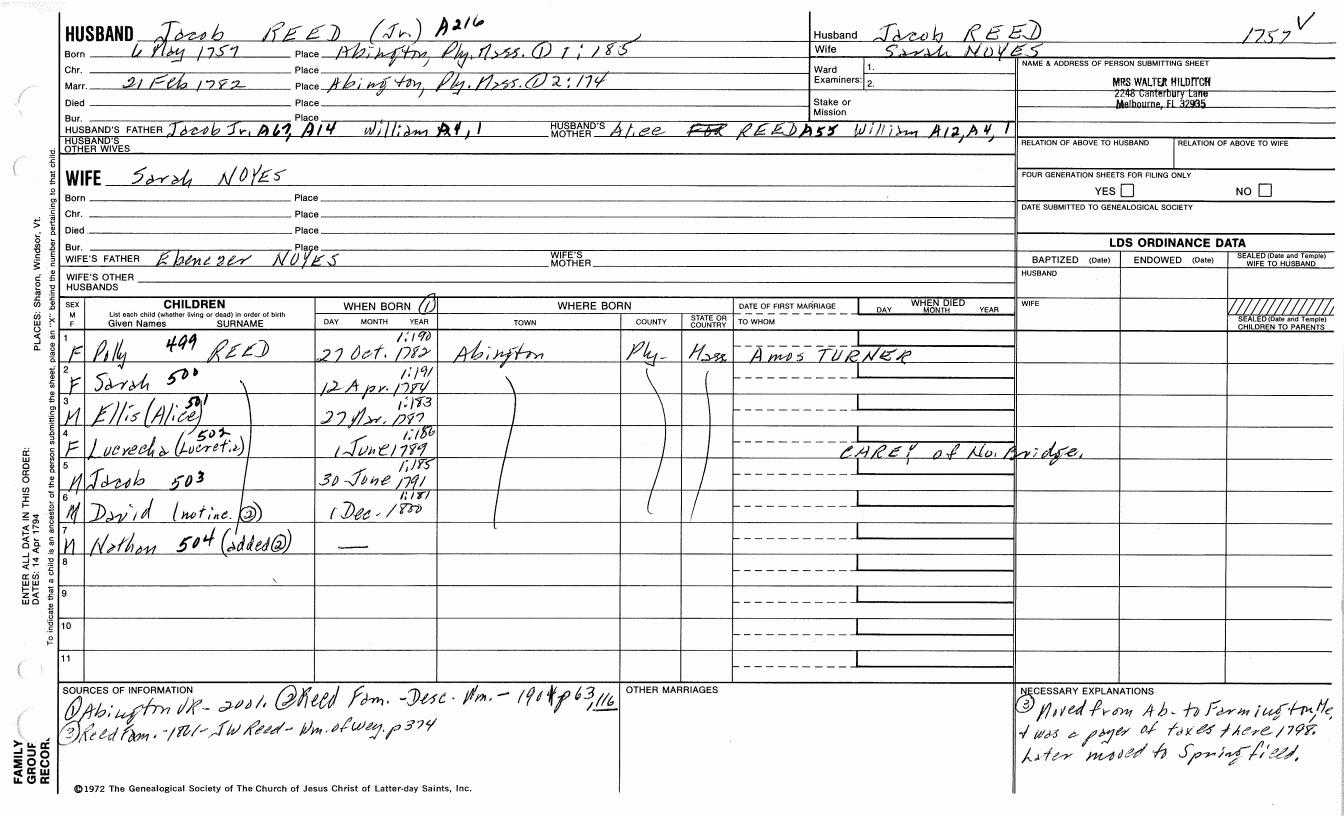 HUSBAND Jacob REED (Jr.) A216
Born 6 May 1757 Place Abington, Ply. Mass. ① 1:185
Chr. Place
Marr. 21 Feb 1782 Place Abington, Ply. Mass. ① 2:174
Died Place
Bur. Place
HUSBAND'S FATHER Jacob Jr. A67, A14 William A4, 1 HUSBAND'S MOTHER Alice REED A55 William A12, A4, 1
HUSBAND'S OTHER WIVES
Husband Jacob REED 1757 ✓
Wife Sarah NOYES
Ward Examiners: 1.
2.
Stake or Mission
NAME & ADDRESS OF PERSON SUBMITTING SHEET
MRS WALTER HILDITCH
2248 Canterbury Lane
Melbourne, FL 32935
RELATION OF ABOVE TO HUSBAND RELATION OF ABOVE TO WIFE
FOUR GENERATION SHEETS FOR FILING ONLY
YES NO
DATE SUBMITTED TO GENEALOGICAL SOCIETY
WIFE Sarah NOYES
Born Place
Chr. Place
Died Place
Bur. Place
WIFE'S FATHER Ebenezer NOYES WIFE'S MOTHER
WIFE'S OTHER HUSBANDS
LDS ORDINANCE DATA
BAPTIZED (Date) ENDOWED (Date) SEALED (Date and Temple) WIFE TO HUSBAND
HUSBAND
WIFE
SEALED (Date and Temple) CHILDREN TO PARENTS
SEX M F CHILDREN List each child (whether living or dead) in order of birth Given Names SURNAME WHEN BORN ① DAY MONTH YEAR WHERE BORN TOWN COUNTY STATE OR COUNTRY DATE OF FIRST MARRIAGE TO WHOM WHEN DIED DAY MONTH YEAR
1 F Polly 499 REED 1:190 27 Oct. 1782 Abington Ply- Mass Amos TURNER
2 F Sarah 500 1:191 12 Apr. 1784
3 M Ellis (Alice) 501 1:183 27 Mar. 1787
4 F Lucrecha (Lucretia) 502 1:186 1 June 1789 CAREY of No. Bridge.
5 M Jacob 503 1:185 30 June 1791
6 M David (not inc. ②) 1:181 1 Dec. 1800
7 M Nathan 504 (added ②) —
8
9
10
11
SOURCES OF INFORMATION
① Abington VR- 2001. ② Reed Fam. -Desc. Wm. - 1904 p63, 116
③ Reed Fam. -1861- JW Reed - Wm. of Wey. p 374
OTHER MARRIAGES
NECESSARY EXPLANATIONS
③ Moved from Ab. to Farmington, Me,
+ was a payer of taxes there 1798.
Later moved to Springfield.
©1972 The Genealogical Society of The Church of Jesus Christ of Latter-day Saints, Inc.
FAMILY GROUP RECOR.
ENTER ALL DATA IN THIS ORDER:
DATES: 14 Apr 1794 PLACES: Sharon, Windsor, Vt.
To indicate that a child is an ancestor of the person submitting the sheet, place an "X" behind the number pertaining to that child.